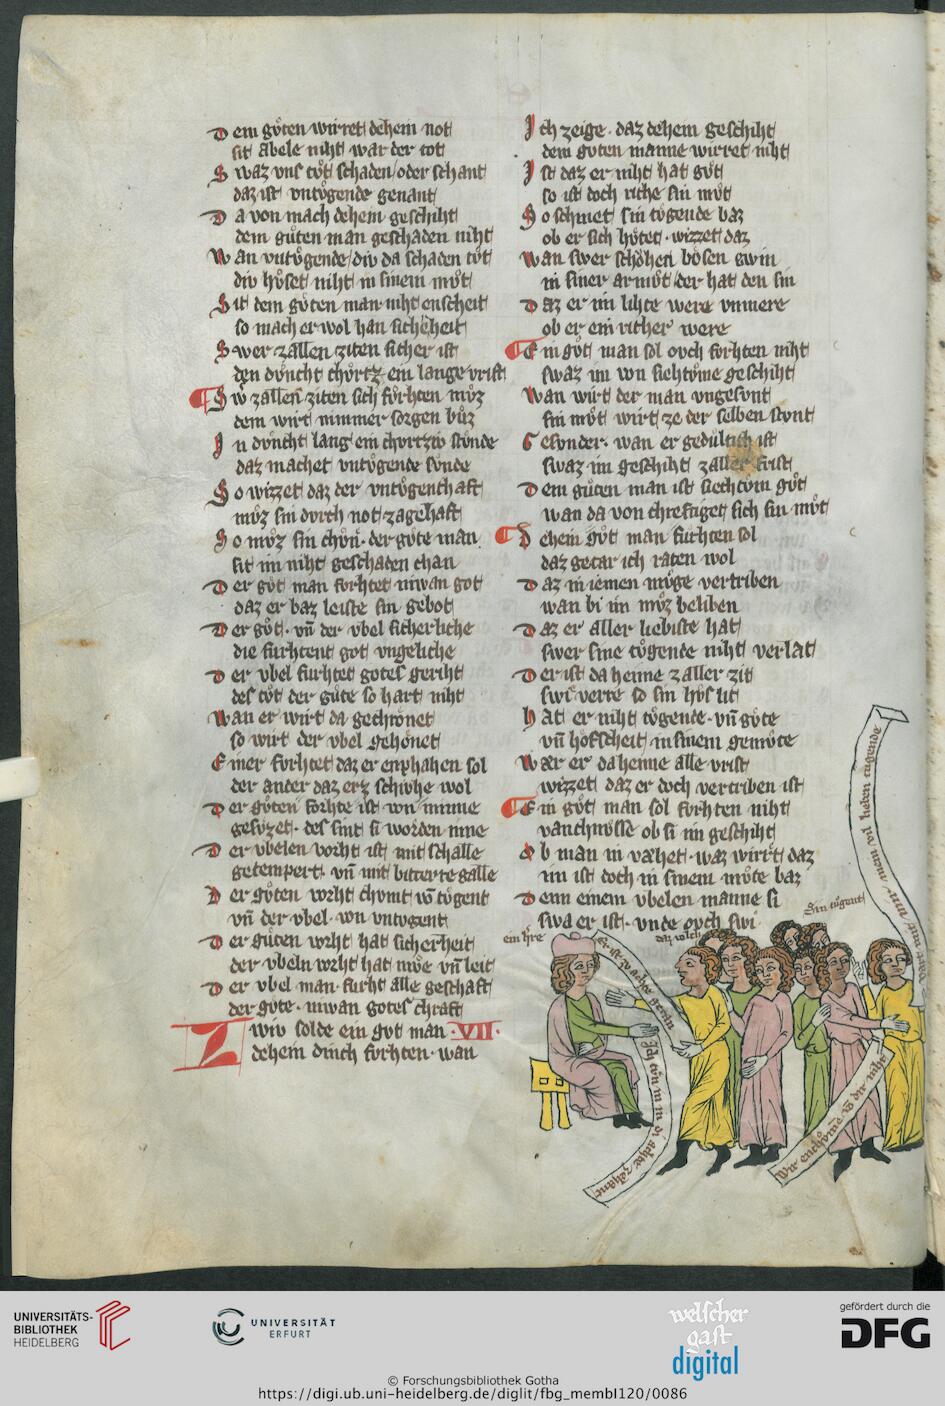 Dem gůten wirret dehein not
sit abele niht war der tot
Swaz vns tůt schaden oder schant
daz ist vntůgende genant
Da von mach dehein geschiht
dem gůten man geschaden niht
Wan vntůgende div da schaden tůt
div hůset niht in sinem můt
Sit dem gůten man niht enscheit
so mach er wol han sicherheit
Swer zallen ziten sicher ist
den dvncht chvrtz ein lange vrist
Swer zallen ziten sich fvrhten můz
dem wirt nimmer sorgen bůz
In dvncht lang ein chvrtziv stvnde
daz machet vntůgende svnde
So wizzet daz der vntůgenthaft
můz sin dvrch not zagehaft
So můz sin chůn der gůte man
sit im niht geschaden chan
Der gůt man fvrhtet niwan got
daz er baz leiste sin gebot
Der gůt vn̄ der vbel sicherliche
die fvrhtent got vngeliche
Der vbel fvrhtet gotes geriht
des tůt der gůte so hart niht
Wan er wirt da gechrônet
so wirt der vbel gehônet
Einer fvrhtet daz er enphahen sol
der ander daz erz schivhe wol
Der gůten forhte ist von minne
gesůzet des sint si worden inne
Der vbelen vorht ist mit schalle
getempert vn̄ mit bitter re galle
Der gůten vorht chvmt vō tůgent
vn̄ der vbel von vntvgent
Der gůten vorht hat sicherheit
der vbeln vorht hat mve vn̄ leit
Der vbel man fvrht alle geschaft
der gůte niwan gotes chraft
Zwiv solde ein gvt man ·VII·
dehein dinch fvrhten wan
Ich zeige daz dehein geschiht
dem gůten manne wirret niht
Ist daz er niht hat gůt
so ist doch riche sin můt
So schinet sin tvgende baz
ob er sich hůtet wizzet daz
Wan swer schôhen bôsen gwin
in siner armůt der hat den sin
Daz er im lihte were vnmere
ob er ein richer were
Ein gůt man sol ovch fvrhten niht
swaz im von siehtůme geschiht
Wan wirt der man vngesvnt
sin můt wirt ze der selben stvnt
Gesvnder wan er gedultich ist
swaz im geschiht zaller frist
Dem gůten man ist siechtvm gůt
wan da von chreftiget sich sin můt
Dehein gůt man fvrhten sol
daz getar ich raten wol
Daz in iemen mvge vertriben
wan bi im můz beliben
Daz er aller liebiste hat
swer sine tůgende niht verlat
Der ist da heime zaller zit
swi verre so sin hvs lit
Hat er niht tůgende vn̄ gůte
vn̄ hofscheit in sinem gemůte
Wær er da heime alle vrist
wizzet daz er doch vertriben ist
Ein gůt man sol fvrhten niht
vanchnvsse ob si im geschiht
Ob man in væhet waz wirrt daz
im ist doch in sinem můte baz
Denn einem vbelen manne si
swa er ist vnde ovch swi
ein h're
Er ist zv ahte
Jch tvn in in di ahte zehant
daz volch
Sin tůgent
mein vil lieben tugende
Wir enchômē vō dir niht
UNIVERSITÄTS-
BIBLIOTHEK
HEIDELBERG
UNIVERSITÄT
ERFURT
welscher
gast
digital
gefördert durch die
DFG
© Forschungsbibliothek Gotha
https://digi.ub.uni-heidelberg.de/diglit/fbg_membI120/0086